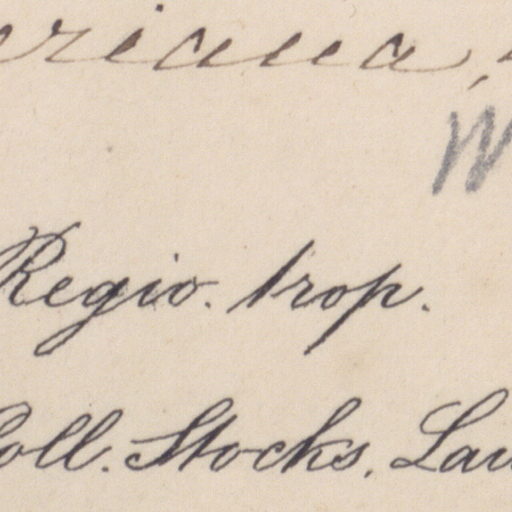 eriana,
W
Regio. trop.
Coll. Stocks, Law